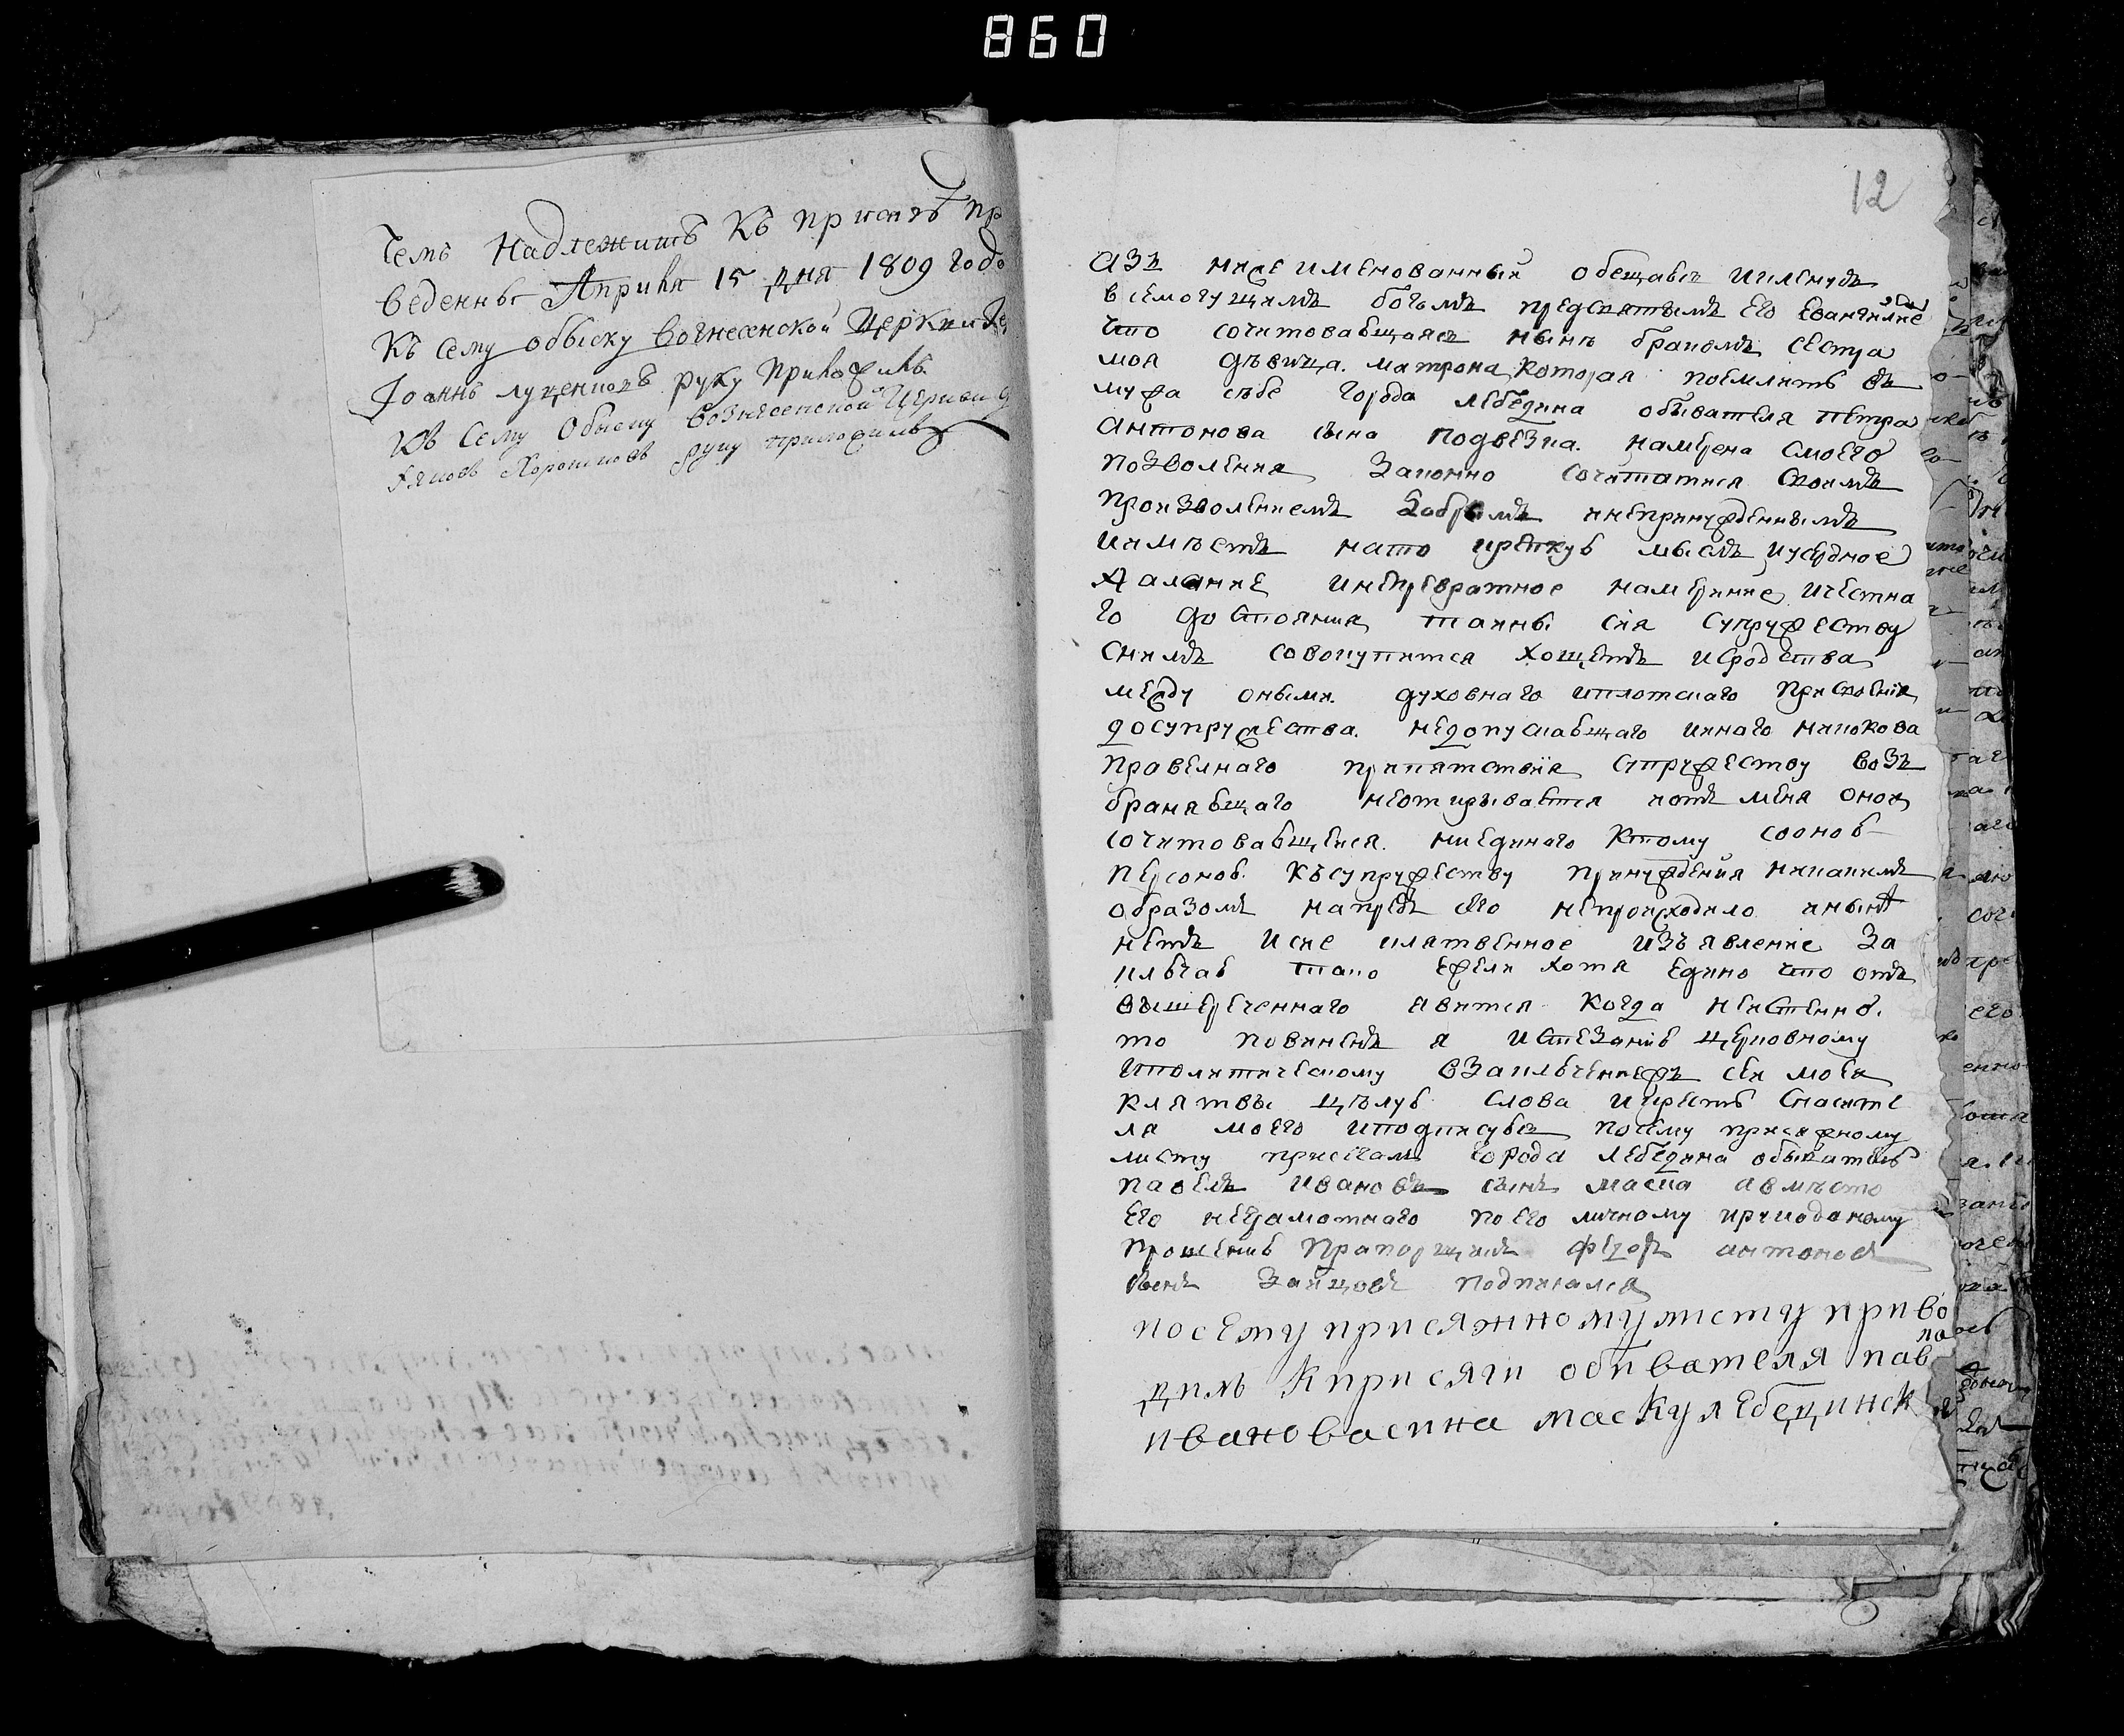 860
12
чемъ Надлежитъ Къ присягѣ пр
веденны Априля 15 дня 1809 Года
Къ сему обыску вознесенской Церкви
Іоаннъ луценковъ руку Приложилъ
Къ Сему Обыску вознесенской Церкви
Яковъ Хорошковъ руку приложилъ
азъ нижеименованный обещаюсь икленусь
всемогущимъ богомъ предсвятымъ Его Евангилие
что сочитовающаясь нынѣ бракомъ сестра
моя дѣвица. матрона, Которая поемлитъ въ
мужа себе города лебедина обывателя петра
антонова сына подвезка. намерена смоего
позволения Законно сочитатися своимъ
произволениемъ добримъ инепринужденнымъ
иимѣетъ нато крепкую мысль, иусердное
желание инепревратное намерение, ичестна
го достояния таины сия супружеству
снимъ совокупится хощетъ исродства
между оными. духовнаго иплотскаго присвоения
досупружества. недопускающаго инаго никокова
правелнаго припятствия супружеству возъ
браняющаго неоткрывается иотъ меня оной
сочитовающейся. ниединаго Ктому сооной
персоной. Късупружеству принуждения никакимъ
образомъ напредъ сего непроисходило инынѣ
нетъ исие клятвенное изъявление За
ключаю тако ежели хотя едино что отъ
вышереченнаго явится когда неистенно.
то повиненъ я истезанию церковному
иполитическому взаключенияхъ сей моей
клятвы целую слова икрестъ спасите
ля моего иподписуюсь посему присяжному
листу присегалъ города лебедина обыватель
павелъ ивановъ сынъ маска авместо
его неграмотнаго поего личному
прошению Прапорщикъ федоръ антоновъ
сынъ Зайцовъ подписался
посему присяжному листу приво
дилъ Кприсяги обивателя пав
ла
ивановасина маску лебединск